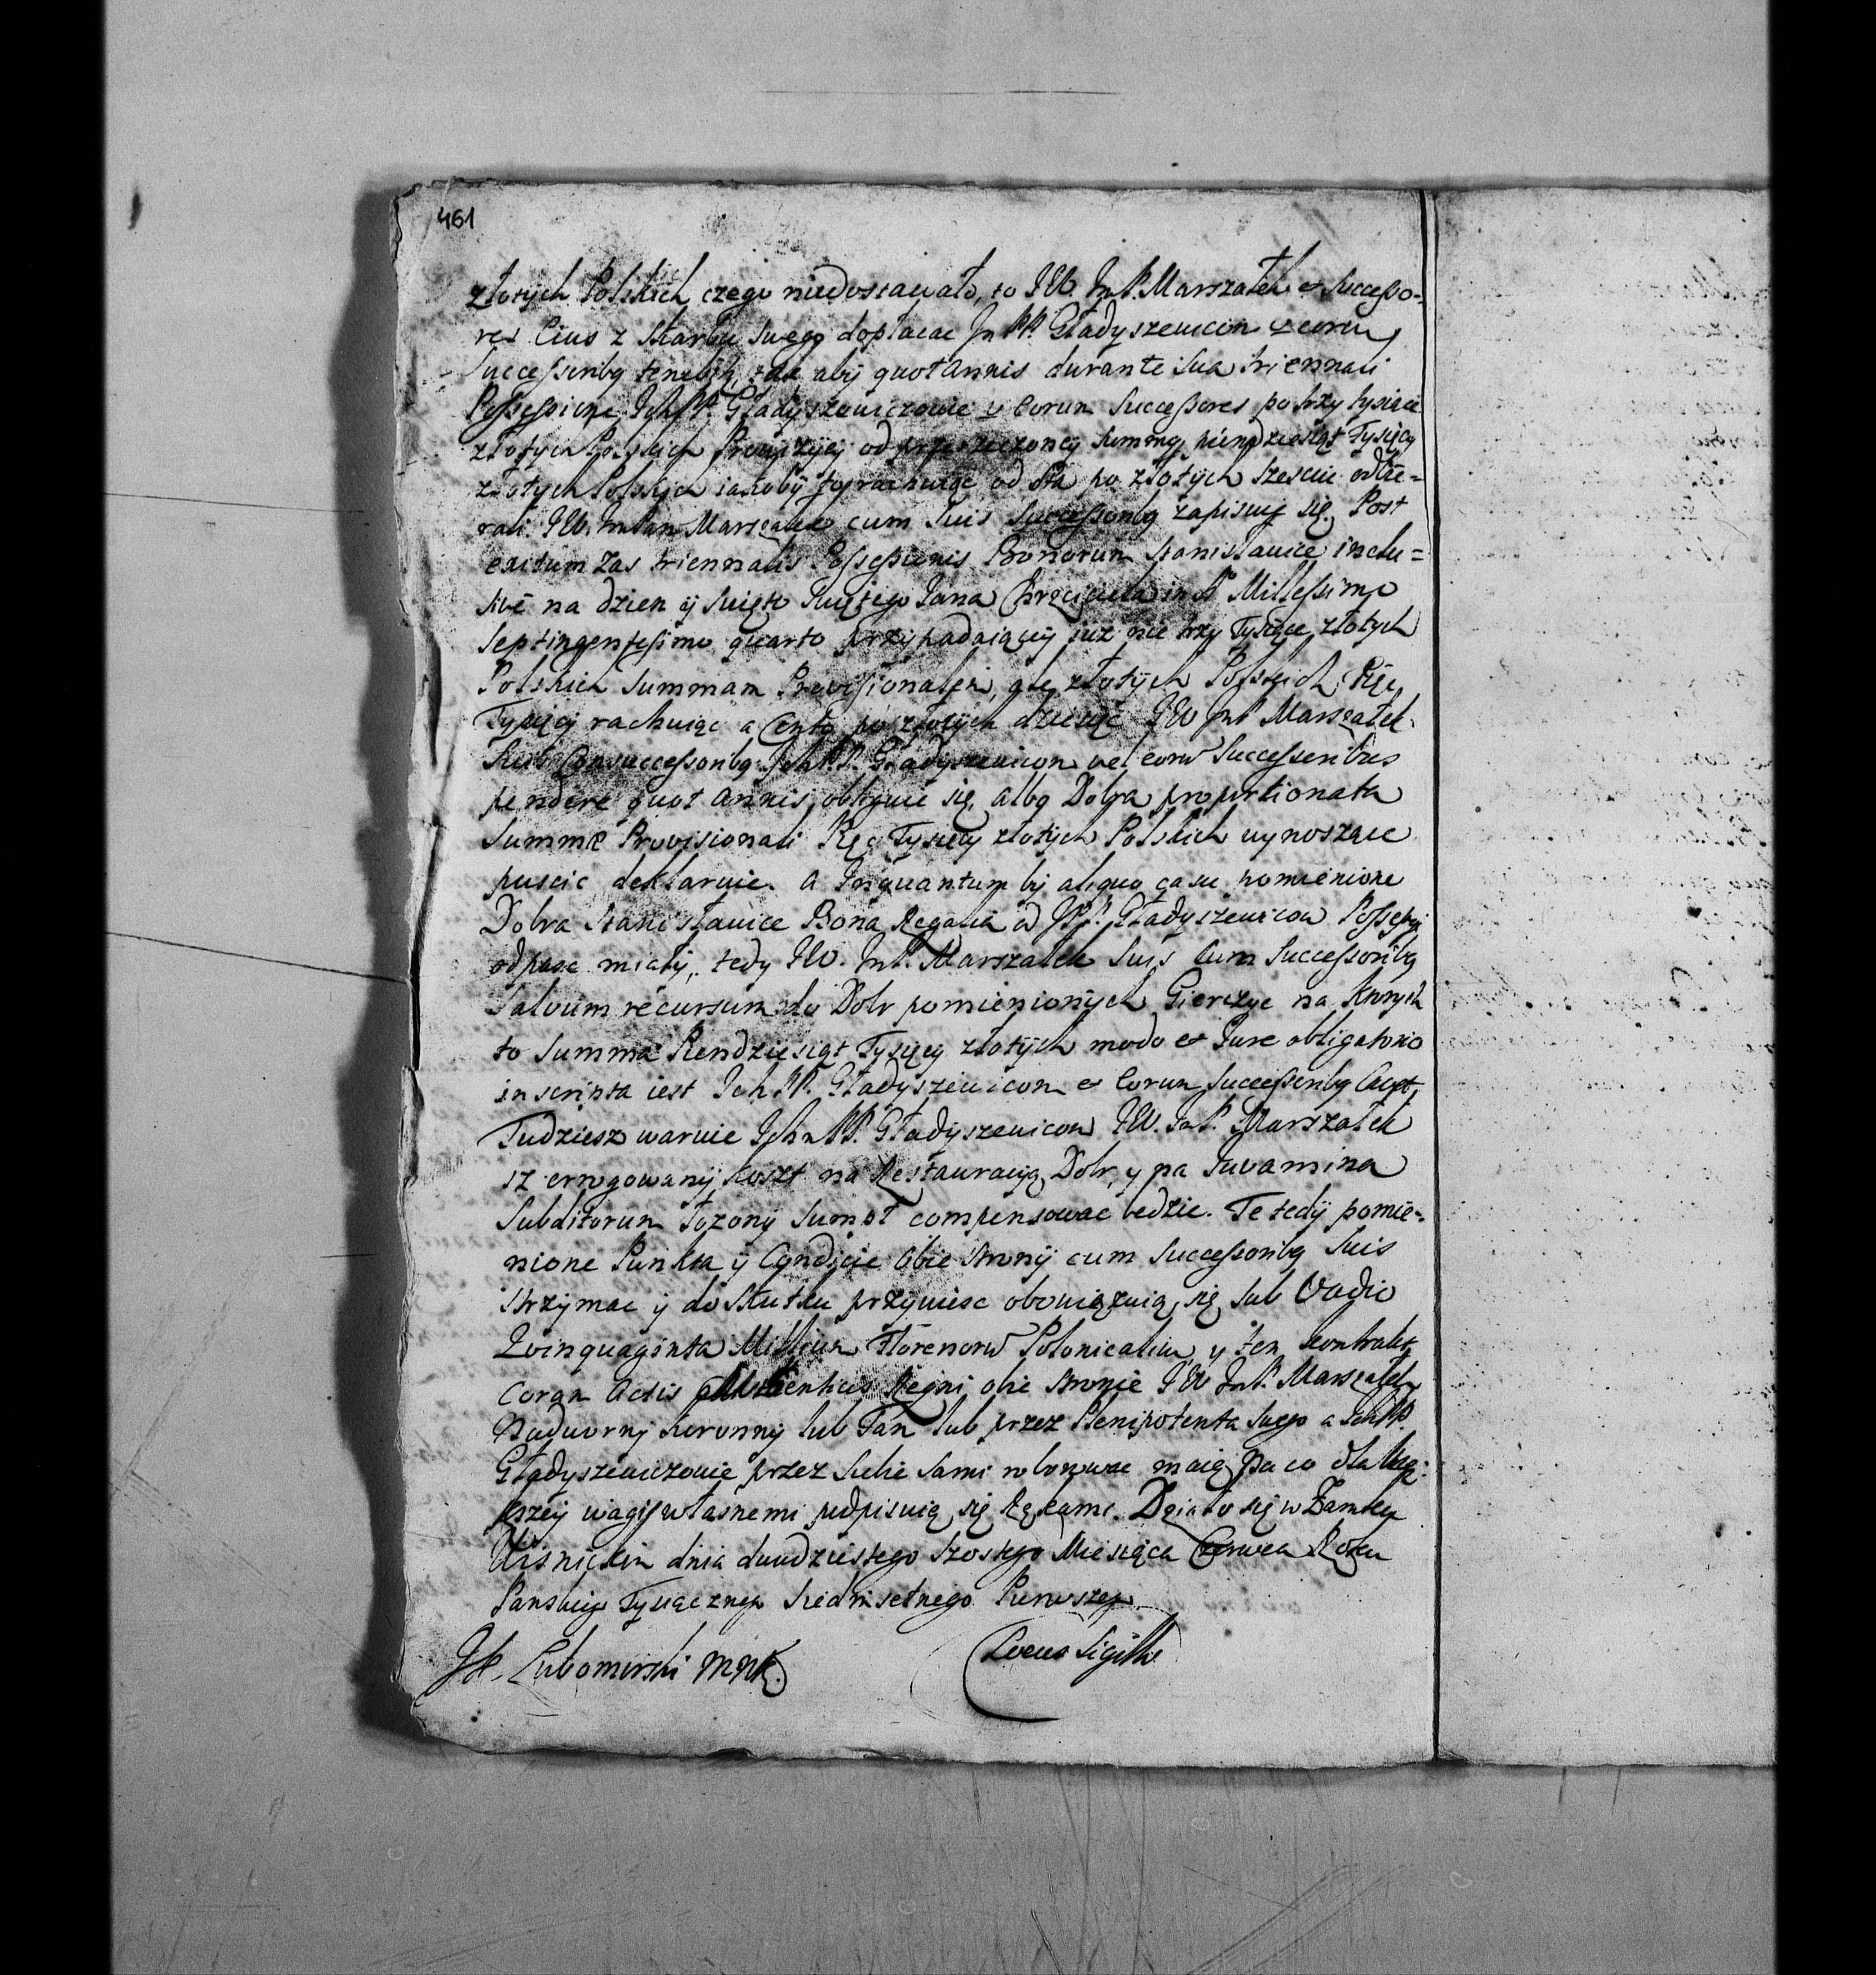 461
złotych Polskich czego niedostawało, to JW Jmć P. Marszałek et Successo-
res Eius z Skarbu swego dopłacać Jm PP. Gładyszewiczom et eorum
Successoribq tenebit, tak aby quotannis durante sua triennali
Possessione Ich PP. Gładyszewiczowie y Eorum Successores po trzy tysiące
złotych Polskich Prowizyej od przerzeczoney Summy pięndziesiąt Tysięcy
złotych Polskich iakoby to rachuiąc od sta po złotych sześciu odbie-
rali JW. Jm Pan Marszałek cum suis Successoribq zapisuie się. Post
exitum zas triennalis Possessionis Bonorum Stanisławice inclu=
sivè na dzien y święto świętego Jana Chrzciciela in Ao Millessimo
Septingentessimo quarto przypadaiącey iuz nie trzy Tysiące złotych
Polskich Summam Provisionalem, ale złotych Polskich Pięc
Tysięcy rachuiąc a Centō po złotych dziesięc JW Jm P. Marszałek
Suis Consuccessoribq Ich PP. Gładyszewiczom vel eorum Successoribus
pendere quot annis obliguie się, albo Dobra proportionata
Summæ Provisionali Pięc Tysięcy złotych Polskich wynoszące
puscic deklaruie. A Inquantum by aliquo casu pomienione
Dobra Stanisławice Bona Regalia od PP. Gładyszewiczow Possessyi
odpasc miały, tedy JW. Jm P. Marszałek suis cum Successoribq
salvum recursum do Dobr pomienionych Gierczyc na ktorych
to Summa Piendziesiąt Tysięcy złotych modo et Jure obligatorio
inscripta iest Ich PP. Gładyszewiczom et Eorum Successoribq
Tudziesz waruie Ich PP. Gładyszewiczom JW. Jm P. Marszałek
isz erogowany koszt na Restauracyą Dobr, y na Juvamina
Subditorum łozony Sumpt compensowac będzie. Te tedy pomie-
nione Punkta y Condicie obie strony cum Successoribq suis
strzymac y do skutku przywiesc obowięzuią się sub Vadio
Qvinquaginta Millium Florenorum Polonicalium y ten kontrakt
coram Actis Authenticis Regni obie stronie JW Jm P. Marszałek
Nadworny Koronny lub sam lub przez Plenipotenta swego a Ich PP.
Gładyszewiczowie przez siebie sami roborowac maią Na co dla lep-
szey wagi własnemi podpisuią się rękami. Działo się w Zamku
Wisnickim dnia dwudziestego szostego Miesiąca Czerwca Roku
Panskiego Tysiącznego Siedmsetnego Pierwszego
Lubomirski MNK.
Locus Sigilli